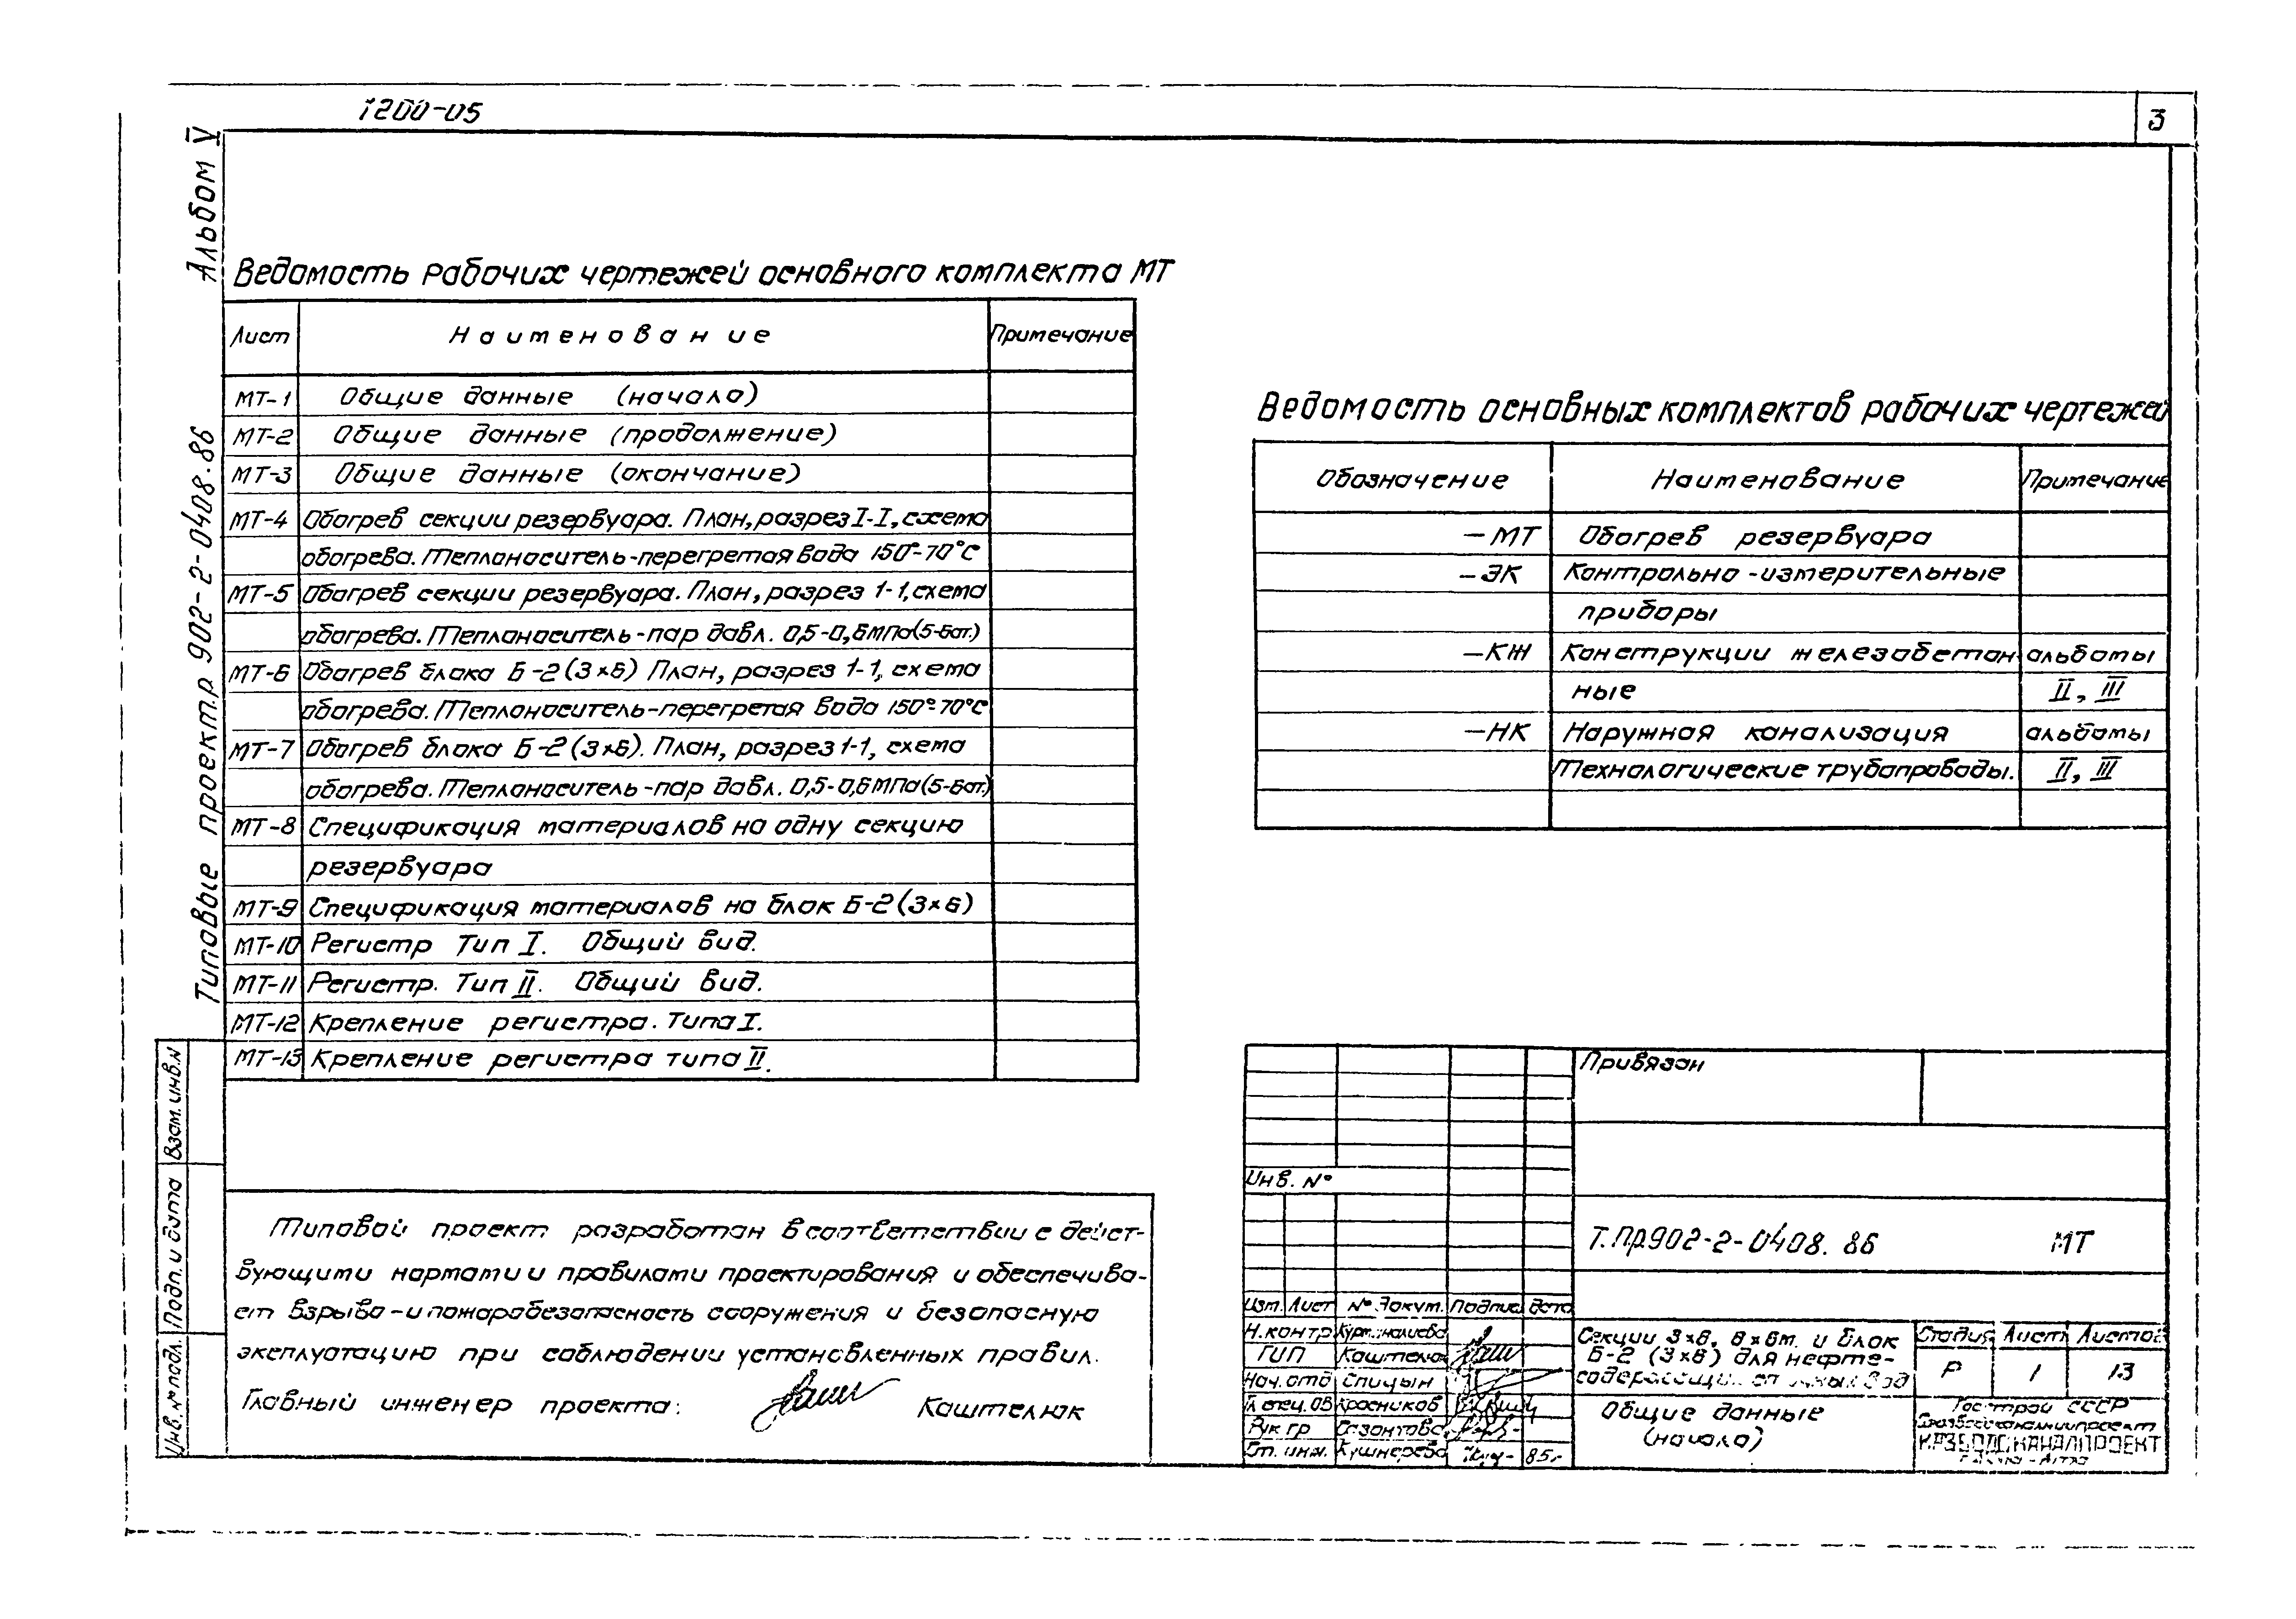 1200-05
3
Альбом V
Типовые проект.р 902-2-0408.86
Ведомость рабочих чертежей основного комплекта МТ
Лист Наименование Примечание
МТ-1 Общие данные (начало)
МТ-2 Общие данные (продолжение)
МТ-3 Общие данные (окончание)
МТ-4 Обогрев секции резервуара. План, разрез I-I, схема
обогрева. Теплоноситель-перегретая вода 150°-70°С
МТ-5 Обогрев секции резервуара. План, разрез 1-1, схема
обогрева. Теплоноситель-пар давл. 0,5-0,6МПа(5-6ат.)
МТ-6 Обогрев блока Б-2 (3×6) План, разрез 1-1, схема
обогрева. Теплоноситель-перегретая вода 150°-70°С
МТ-7 Обогрев блока Б-2 (3×6). План, разрез 1-1, схема
обогрева. Теплоноситель-пар давл. 0,5-0,6МПа(5-6ат.)
МТ-8 Спецификация материалов на одну секцию
резервуара
МТ-9 Спецификация материалов на блок Б-2 (3×6)
МТ-10 Регистр Тип I. Общий вид.
МТ-11 Регистр. Тип II. Общий вид.
МТ-12 Крепление регистра. Типа I.
МТ-13 Крепление регистра типа II.
Ведомость основных комплектов рабочих чертежей
Обозначение Наименование Примечание
-МТ Обогрев резервуара
-ЭК Контрольно-измерительные
приборы
-КЖ Конструкции железобетон альбомы
ные II, III
-НК Наружная канализация альбомы
Технологические трубопроводы. II, III
Типовой проект разработан в соответствии с дейст-
вующими нормами и правилами проектирования и обеспечива-
ет взрыво-и пожаробезопасность сооружения и безопасную
эксплуатацию при соблюдении установленных правил.
Главный инженер проекта: Каштелюк
Взам. инв.N
Подп. и дата
Инв. № подл.
Привязан
Инв. №
Т.пр902-2-0408.86 МТ
Изм. Лист № докум. Подпис дата
Н.контр
ГИП Каштелюк
Нач. отд Спицын
Гл спец. ОВ Красников
Рук гр
Ст. инж. Кушнерева 85г
Секции 3×6, 6×6м. и блок
Б-2 (3×6) для нефте-
содержащих сточных вод
Стадия Лист Листов
Р 1 13
Общие данные
(начало)
Госстрой СССР
КАЗВОДОКАНАЛПРОЕКТ